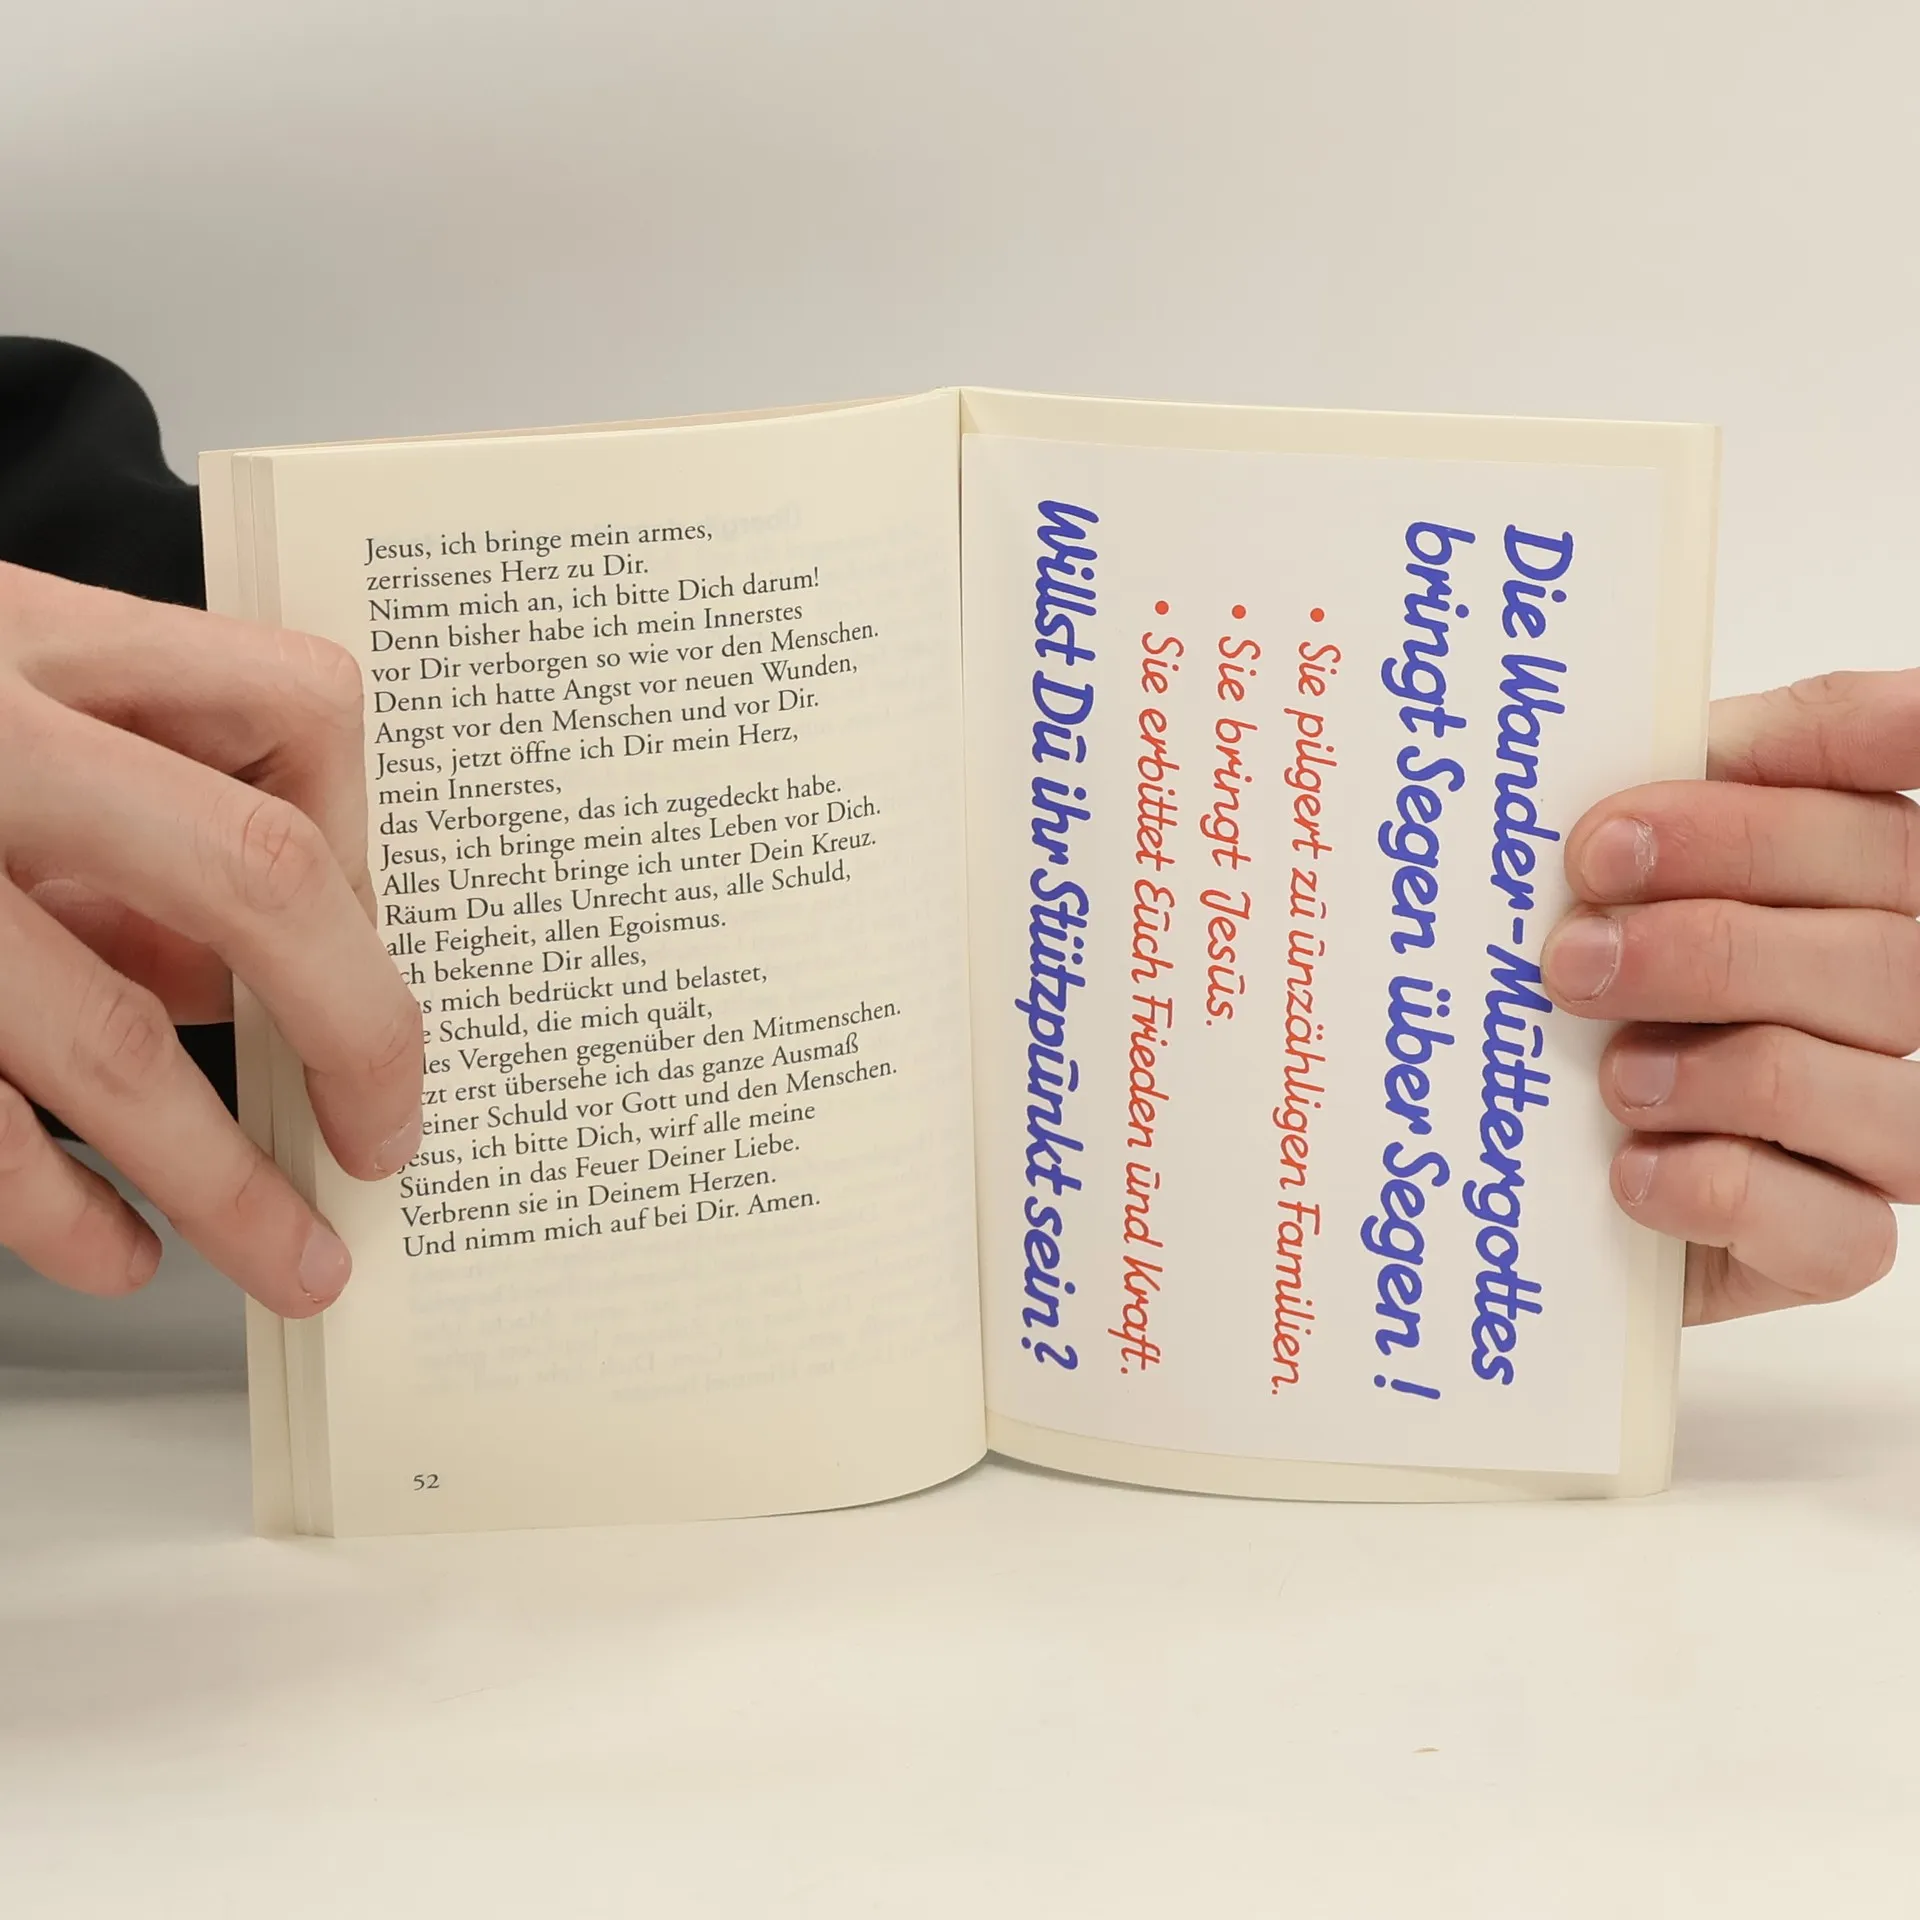 Jesus, ich bringe mein armes,
zerrissenes Herz zu Dir.
Nimm mich an, ich bitte Dich darum!
Denn bisher habe ich mein Innerstes
vor Dir verborgen so wie vor den Menschen.
Denn ich hatte Angst vor neuen Wunden,
Angst vor den Menschen und vor Dir.
Jesus, jetzt öffne ich Dir mein Herz,
mein Innerstes,
das Verborgene, das ich zugedeckt habe.
Jesus, ich bringe mein altes Leben vor Dich.
Alles Unrecht bringe ich unter Dein Kreuz.
Räum Du alles Unrecht aus, alle Schuld,
alle Feigheit, allen Egoismus.
bekenne Dir alles,
mich bedrückt und belastet,
Schuld, die mich quält,
Vergehen gegenüber den Mitmenschen.
erst übersehe ich das ganze Ausmaß
Schuld vor Gott und den Menschen.
Jesus, ich bitte Dich, wirf alle meine
Sünden in das Feuer Deiner Liebe.
Verbrenn sie in Deinem Herzen.
Und nimm mich auf bei Dir. Amen.
52
Die Wander-Muttergottes
bringt Segen über Segen!
• Sie pilgert zu unzähligen Familien.
• Sie bringt Jesus.
• Sie erbittet Euch Frieden und Kraft.
Willst Du ihr Stützpunkt sein?